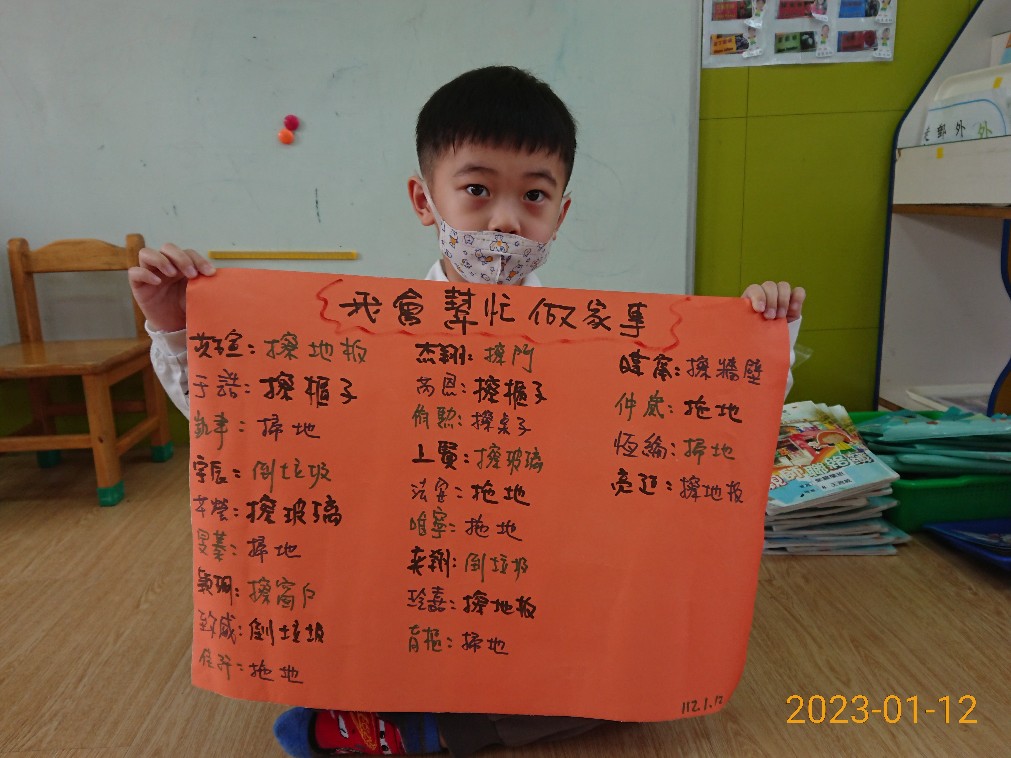 我會幫忙做家事
擦地板
于誥：擦櫃子
執事：掃地
宇辰：倒垃圾
苹瑩：擦玻璃
旻蓁：掃地
擦窗戶
致威：倒垃圾
佳妡：拖地
杰翔：擦門
芮恩：擦櫃子
侑勳：擦桌子
上賢：擦玻璃
法安：拖地
唯寧：拖地
奕翔：倒垃圾
玲嘉：擦地板
育樞：掃地
擦牆壁
仲崴：拖地
恆綸：掃地
亮廷：擦地板
112.1.12
2023-01-12